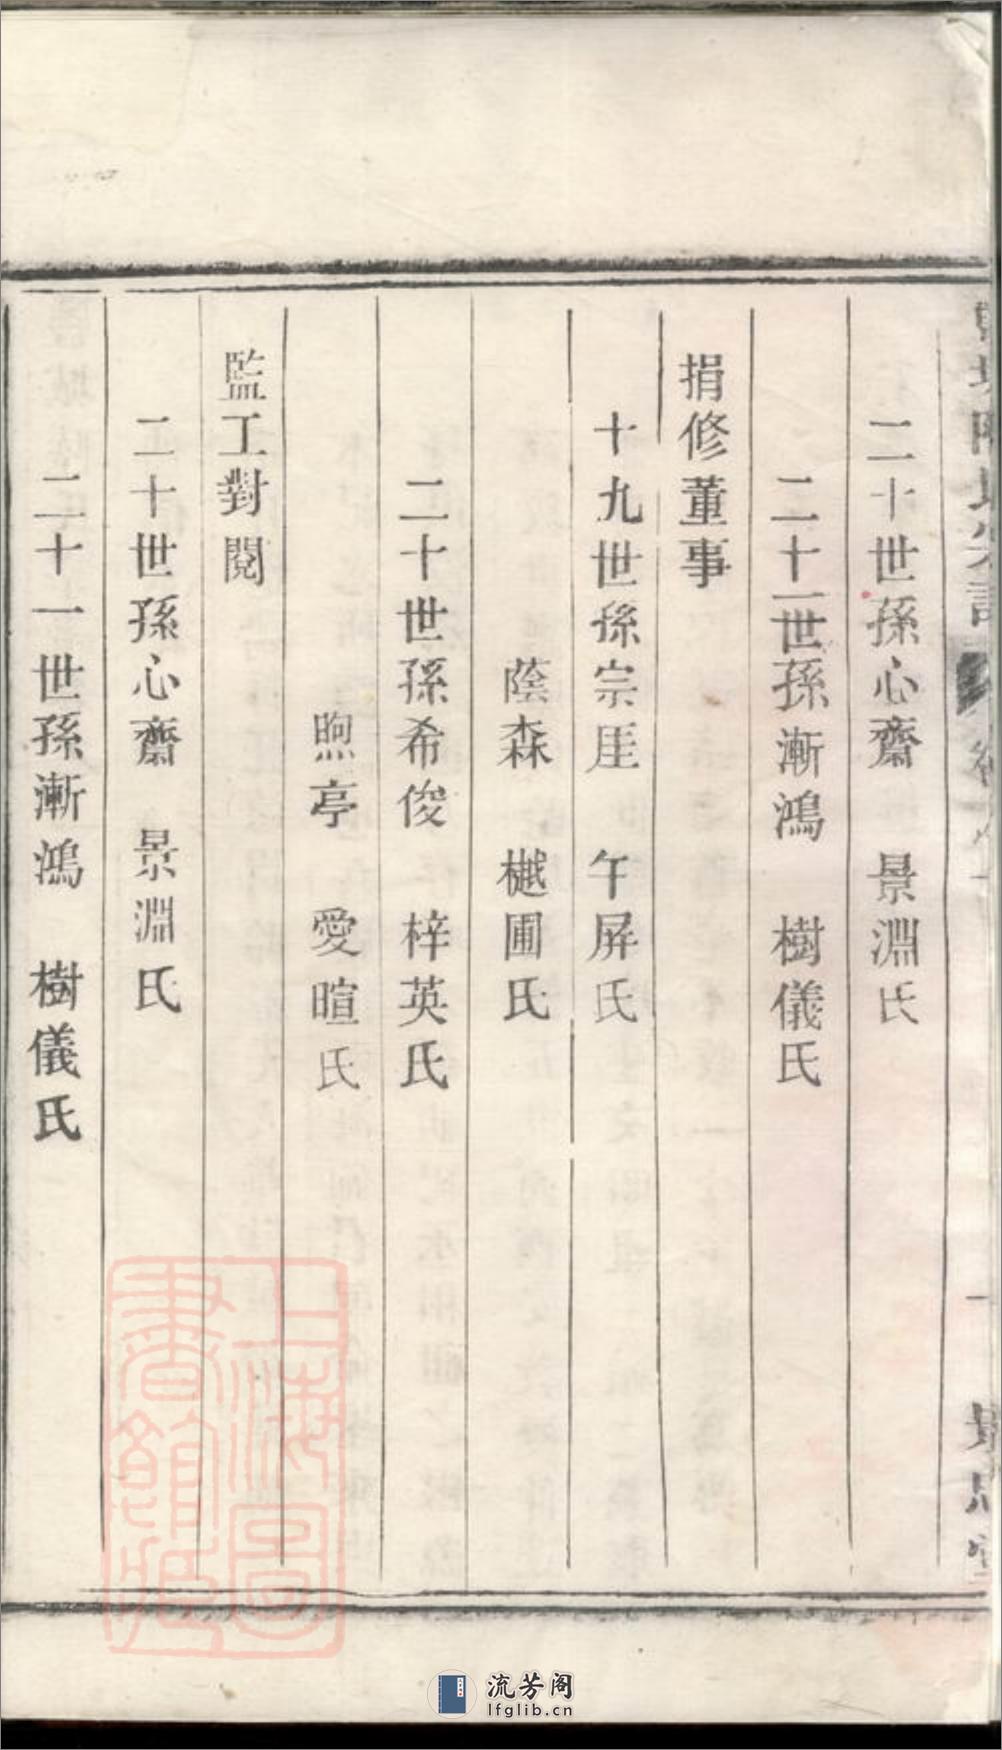 二十世孫心齋　景淵氏
二十一世孫漸鴻　樹儀氏
捐修董事
十九世孫宗厓　午屏氏
蔭森　樾圃氏
二十世孫希俊　梓英氏
煦亭　愛暄氏
監工對閱
二十世孫心齋　景淵氏
二十一世孫漸鴻　樹儀氏
上海圖
書館藏
流芳阁
lfglib.cn